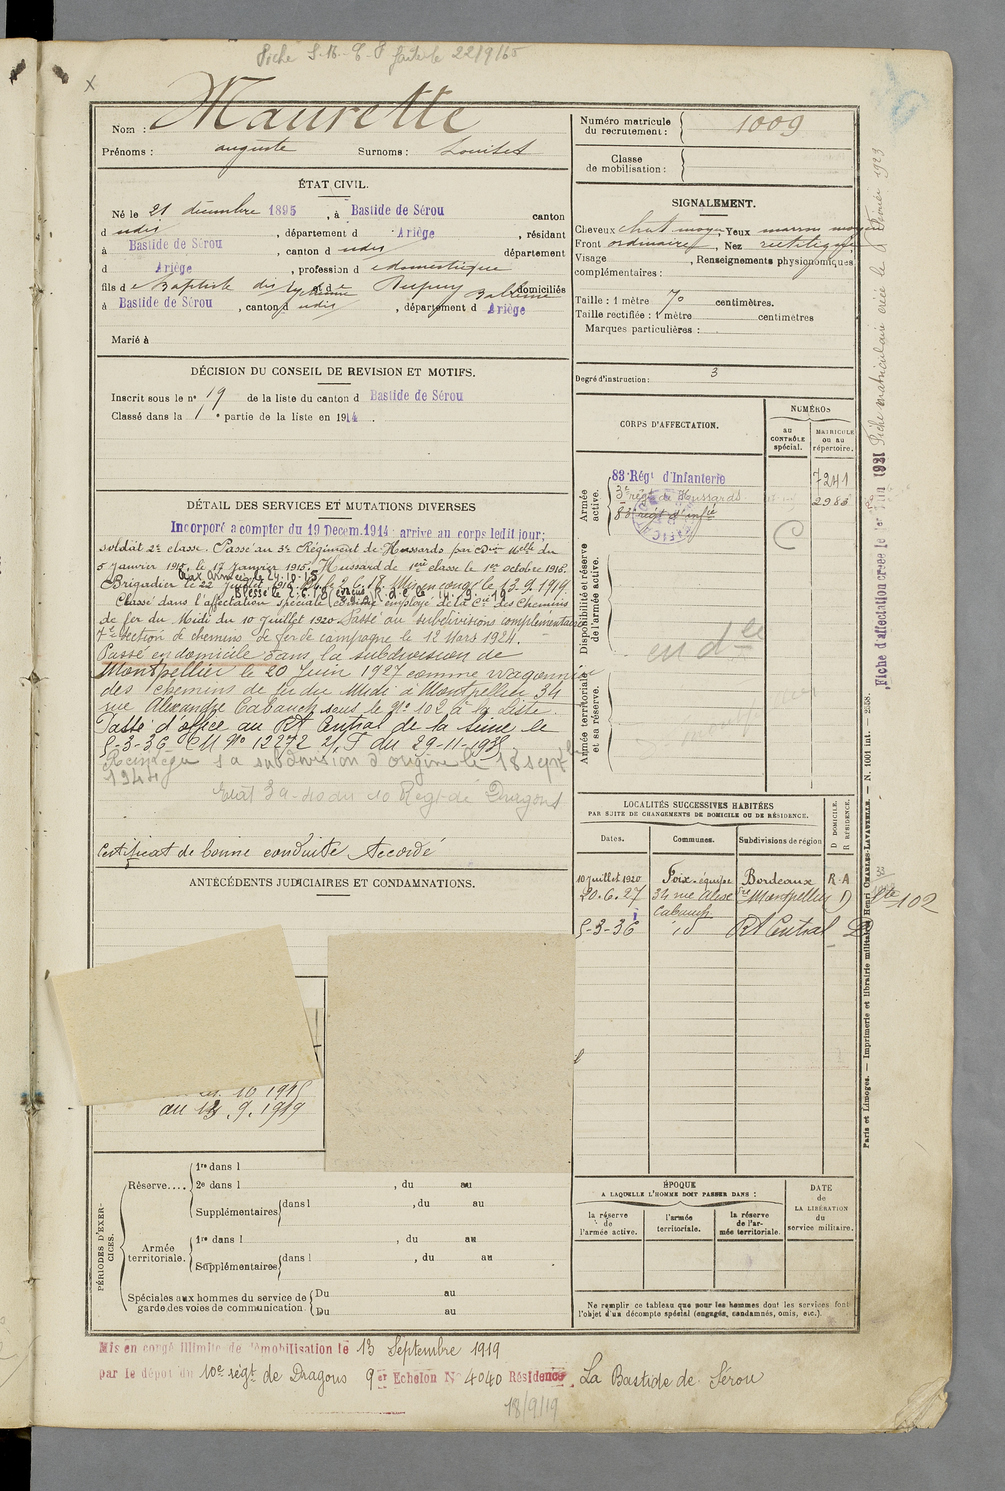 Fiche S. M. faite le 22/9/65
X
Nom : Maurette
Prénoms : auguste Surnoms : Louiset
ÉTAT CIVIL.
Né le 21 décembre 1895, à Bastide de Sérou canton
d udis, département d Ariège, résidant
à Bastide de Sérou, canton d udis département
d Ariège, profession d e domestique
fils d e Baptiste et d e Dupuy domiciliés
à Bastide de Sérou, canton d udis, département d Ariège
Marié à
DÉCISION DU CONSEIL DE REVISION ET MOTIFS.
Inscrit sous le n° 19 de la liste du canton d Bastide de Sérou
Classé dans la 1e partie de la liste en 1914.
DÉTAIL DES SERVICES ET MUTATIONS DIVERSES
Incorporé a compter du 19 Decem. 1914; arrive au corps ledit jour;
soldat 2e classe. Passé au 3e Régiment de Hussards par
5 janvier 1915, le 17 janvier 1915. Hussard de 1ere classe le 1er octobre 1915.
Aux Armées le 24.10.15
Brigadier le 22 juillet 1916. Mis en congé le 13.9.1919
Blessé le 2.6.18
Classé dans l'affectation spéciale comme employé de la Cie des Chemins
de fer du Midi du 10 juillet 1920. Passé au subdivisions complementaires
7e section de chemins de fer de campagne le 12 Mars 1924.
Passé en domicile dans la subdivision de
Montpellier le 20 Juin 1927 comme wagonnier
des chemins de fer du Midi à Montpellier 34
rue Alexandre Cabanel sous le N° 102 à la Liste.
Passé d'office au RA Central de la Seine le
5-3-36 CM N° 12272 2/T du 29-11-1935
Reintégré sa subdivision d'origine le 18 sept
1944
Etat 39-40 du 10 Regt de Dragons
Certificat de bonne conduite Accordé
ANTÉCÉDENTS JUDICIAIRES ET CONDAMNATIONS.
10 1915
au 13.9.1919
PÉRIODES D'EXERCICES.
Réserve....
1re dans l
2e dans l , du au
Supplémentaires dans l , du au
Armée territoriale.
1re dans l , du au
Supplémentaires dans l , du au
Spéciales aux hommes du service de garde des voies de communication.
Du au
Du au
Mis en congé illimité de démobilisation le 13 Septembre 1919
par le dépôt du 10e régt de Dragons 9er Echelon N° 4040 Résidence La Bastide de Sérou
18/9/19
Numéro matricule du recrutement : 1009
Classe de mobilisation :
SIGNALEMENT.
Cheveux chat moyen, Yeux marron moyen
Front ordinaire, Nez rectiligne
Visage , Renseignements physionomiques
complémentaires :
Taille : 1 mètre 70 centimètres.
Taille rectifiée : 1 mètre centimètres
Marques particulières :
Degré d'instruction : 3
CORPS D'AFFECTATION.
NUMÉROS
au CONTRÔLE spécial.
MATRICULE ou au répertoire.
Armée active.
83e Régt d'Infanterie 7241
3e régt de Hussards 2983
83e régt d'infie
C
Disponibilité et réserve de l'armée active.
en dlle
Armée territoriale et sa réserve.
LOCALITÉS SUCCESSIVES HABITÉES
PAR SUITE DE CHANGEMENTS DE DOMICILE OU DE RÉSIDENCE.
Dates. Communes. Subdivisions de région D DOMICILE. R RÉSIDENCE.
10 juillet 1920 Foix-équipe Bordeaux R.A
20.6.27 34 rue Alexdre Montpellier D Lte 102
Cabanel
5-3-36 id RA Central D
ÉPOQUE
A LAQUELLE L'HOMME DOIT PASSER DANS :
la réserve de l'armée active.
l'armée territoriale.
la réserve de l'armée territoriale.
DATE de LA LIBÉRATION du service militaire.
Ne remplir ce tableau que pour les hommes dont les services font
l'objet d'un décompte spécial (engagés, condamnés, omis, etc.).
Fiche d'affectation créée le 1er Juin 1931
Fiche matriculaire créée le 8 Février 1923
Paris et Limoges. — Imprimerie et librairie militaires Henri CHARLES-LAVAUZELLE. — N. 1001 int. — 2558.